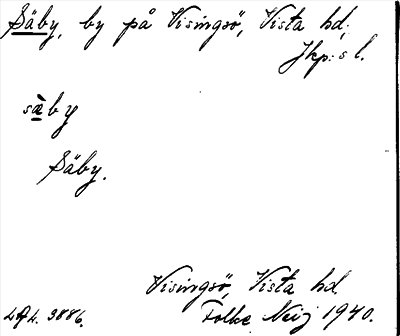 Säby, by på Visingsö, Vista hd,
Jkp:s l.
sä̀by
Säby.
Visingsö, Vista hd.
Folke Neij 1940.
3886.